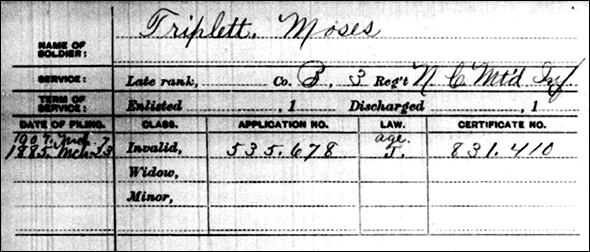 Triplett, Moses
NAME OF SOLDIER:
SERVICE: Late rank, Co. B, 3 Reg't N C Mt'd Inf
TERM OF SERVICE: Enlisted , 1 Discharged , 1
DATE OF FILING. CLASS. APPLICATION NO. LAW. CERTIFICATE NO.
1907. Mch. 7 age.
1885. Mch. 23 Invalid, 535.678 J. 831.410
Widow,
Minor,